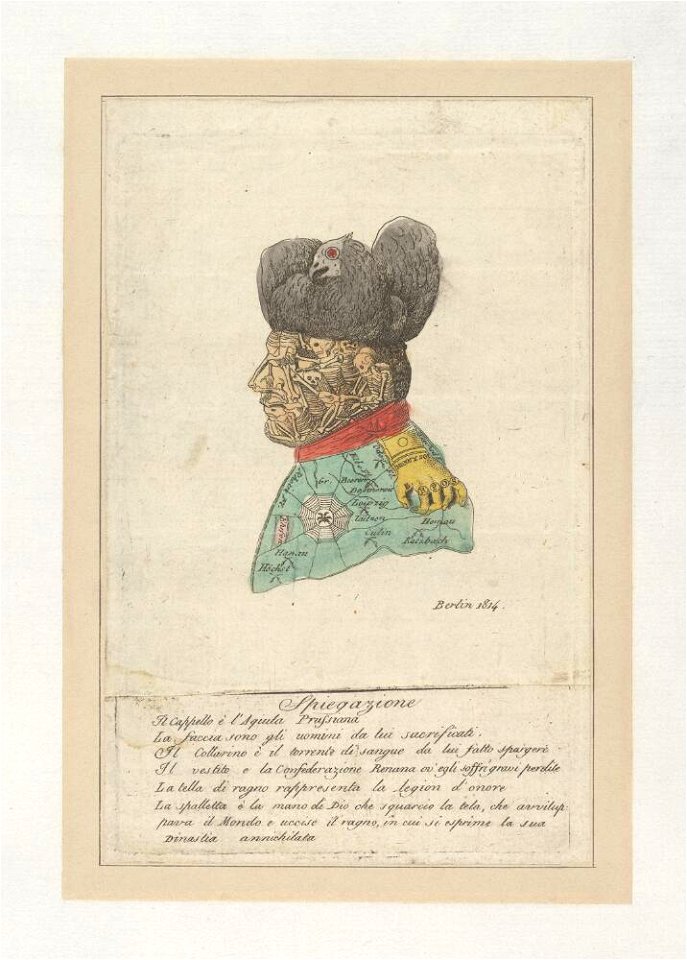 Höchst
Hanau
Leipzig
Culm
Katzbach
Berlin 1814.
Spiegazione
Il Cappello è l'Aquila Prussiana
La faccia sono gli uomini da lui sacrificati.
Il Collarino è il torrente di sangue da lui fatto spargere
Il vestito e la Confederazione Renana ov'egli soffrì gravi perdite
La tella di ragno rappresenta la legion d'onore
La spalletta è la mano de Dio che squarciò la tela, che avvilup-
pava il Mondo e uccise il ragno, in cui si esprime la sua
Dinastia annichilata